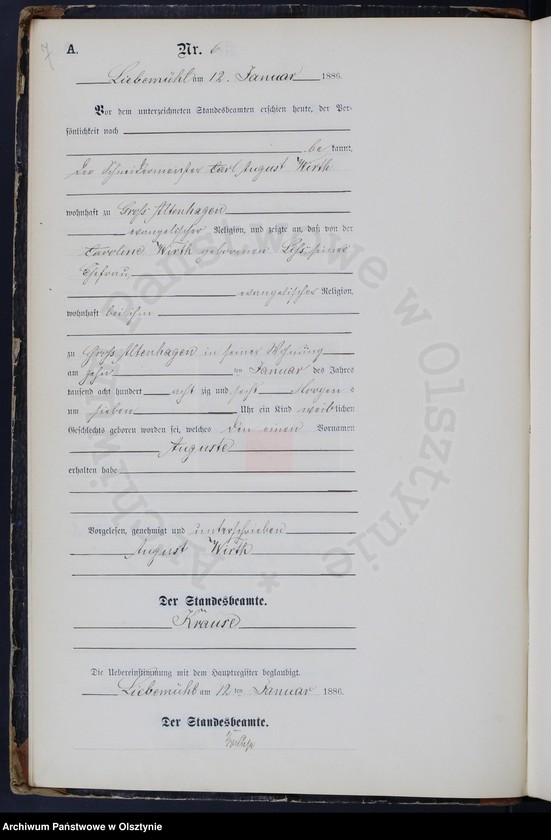 7
A. Nr. 6
Liebemühl am 12. Januar 1886.
Vor dem unterzeichneten Standesbeamten erschien heute, der Per-
sönlichkeit nach
be kannt,
der Schneidermeister Carl August Wirth
wohnhaft zu Groß Altenhagen
evangelischer Religion, und zeigte an, daß von der
Caroline Wirth geborenen seiner
Ehefrau,
evangelischer Religion,
wohnhaft bei ihm
zu Groß Altenhagen in seiner Wohnung
am zehn ten Januar des Jahres
tausend acht hundert acht zig und sechs Morgens
um sieben Uhr ein Kind weiblichen
Geschlechts geboren worden sei, welches den einen Vornamen
Auguste
erhalten habe
Vorgelesen, genehmigt und unterschrieben
August Wirth
Der Standesbeamte.
Krause
Die Uebereinstimmung mit dem Hauptregister beglaubigt.
Liebemühl am 12 ten Januar 1886.
Der Standesbeamte.
Archiwum Państwowe w Olsztynie
Archiwum Państwowe w Olsztynie *